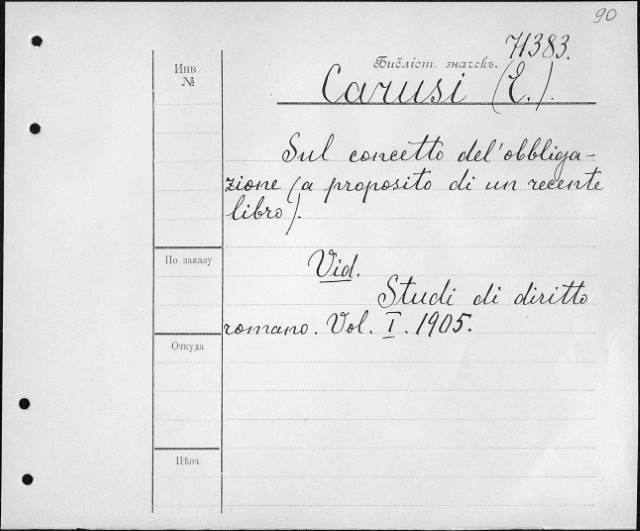 90
71383.
Библіот. значекъ.
Инв.
№
Carusi (E.).
Sul concetto del'obbliga-
zione (a proposito di un recente
libro).
По заказу
Vid.
Studi di diritto
romano. Vol. I. 1905.
Откуда
Цѣна